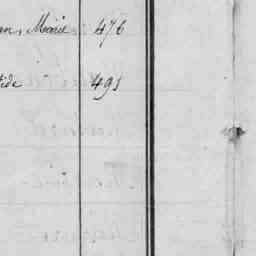 an, Marie 476
ide 491